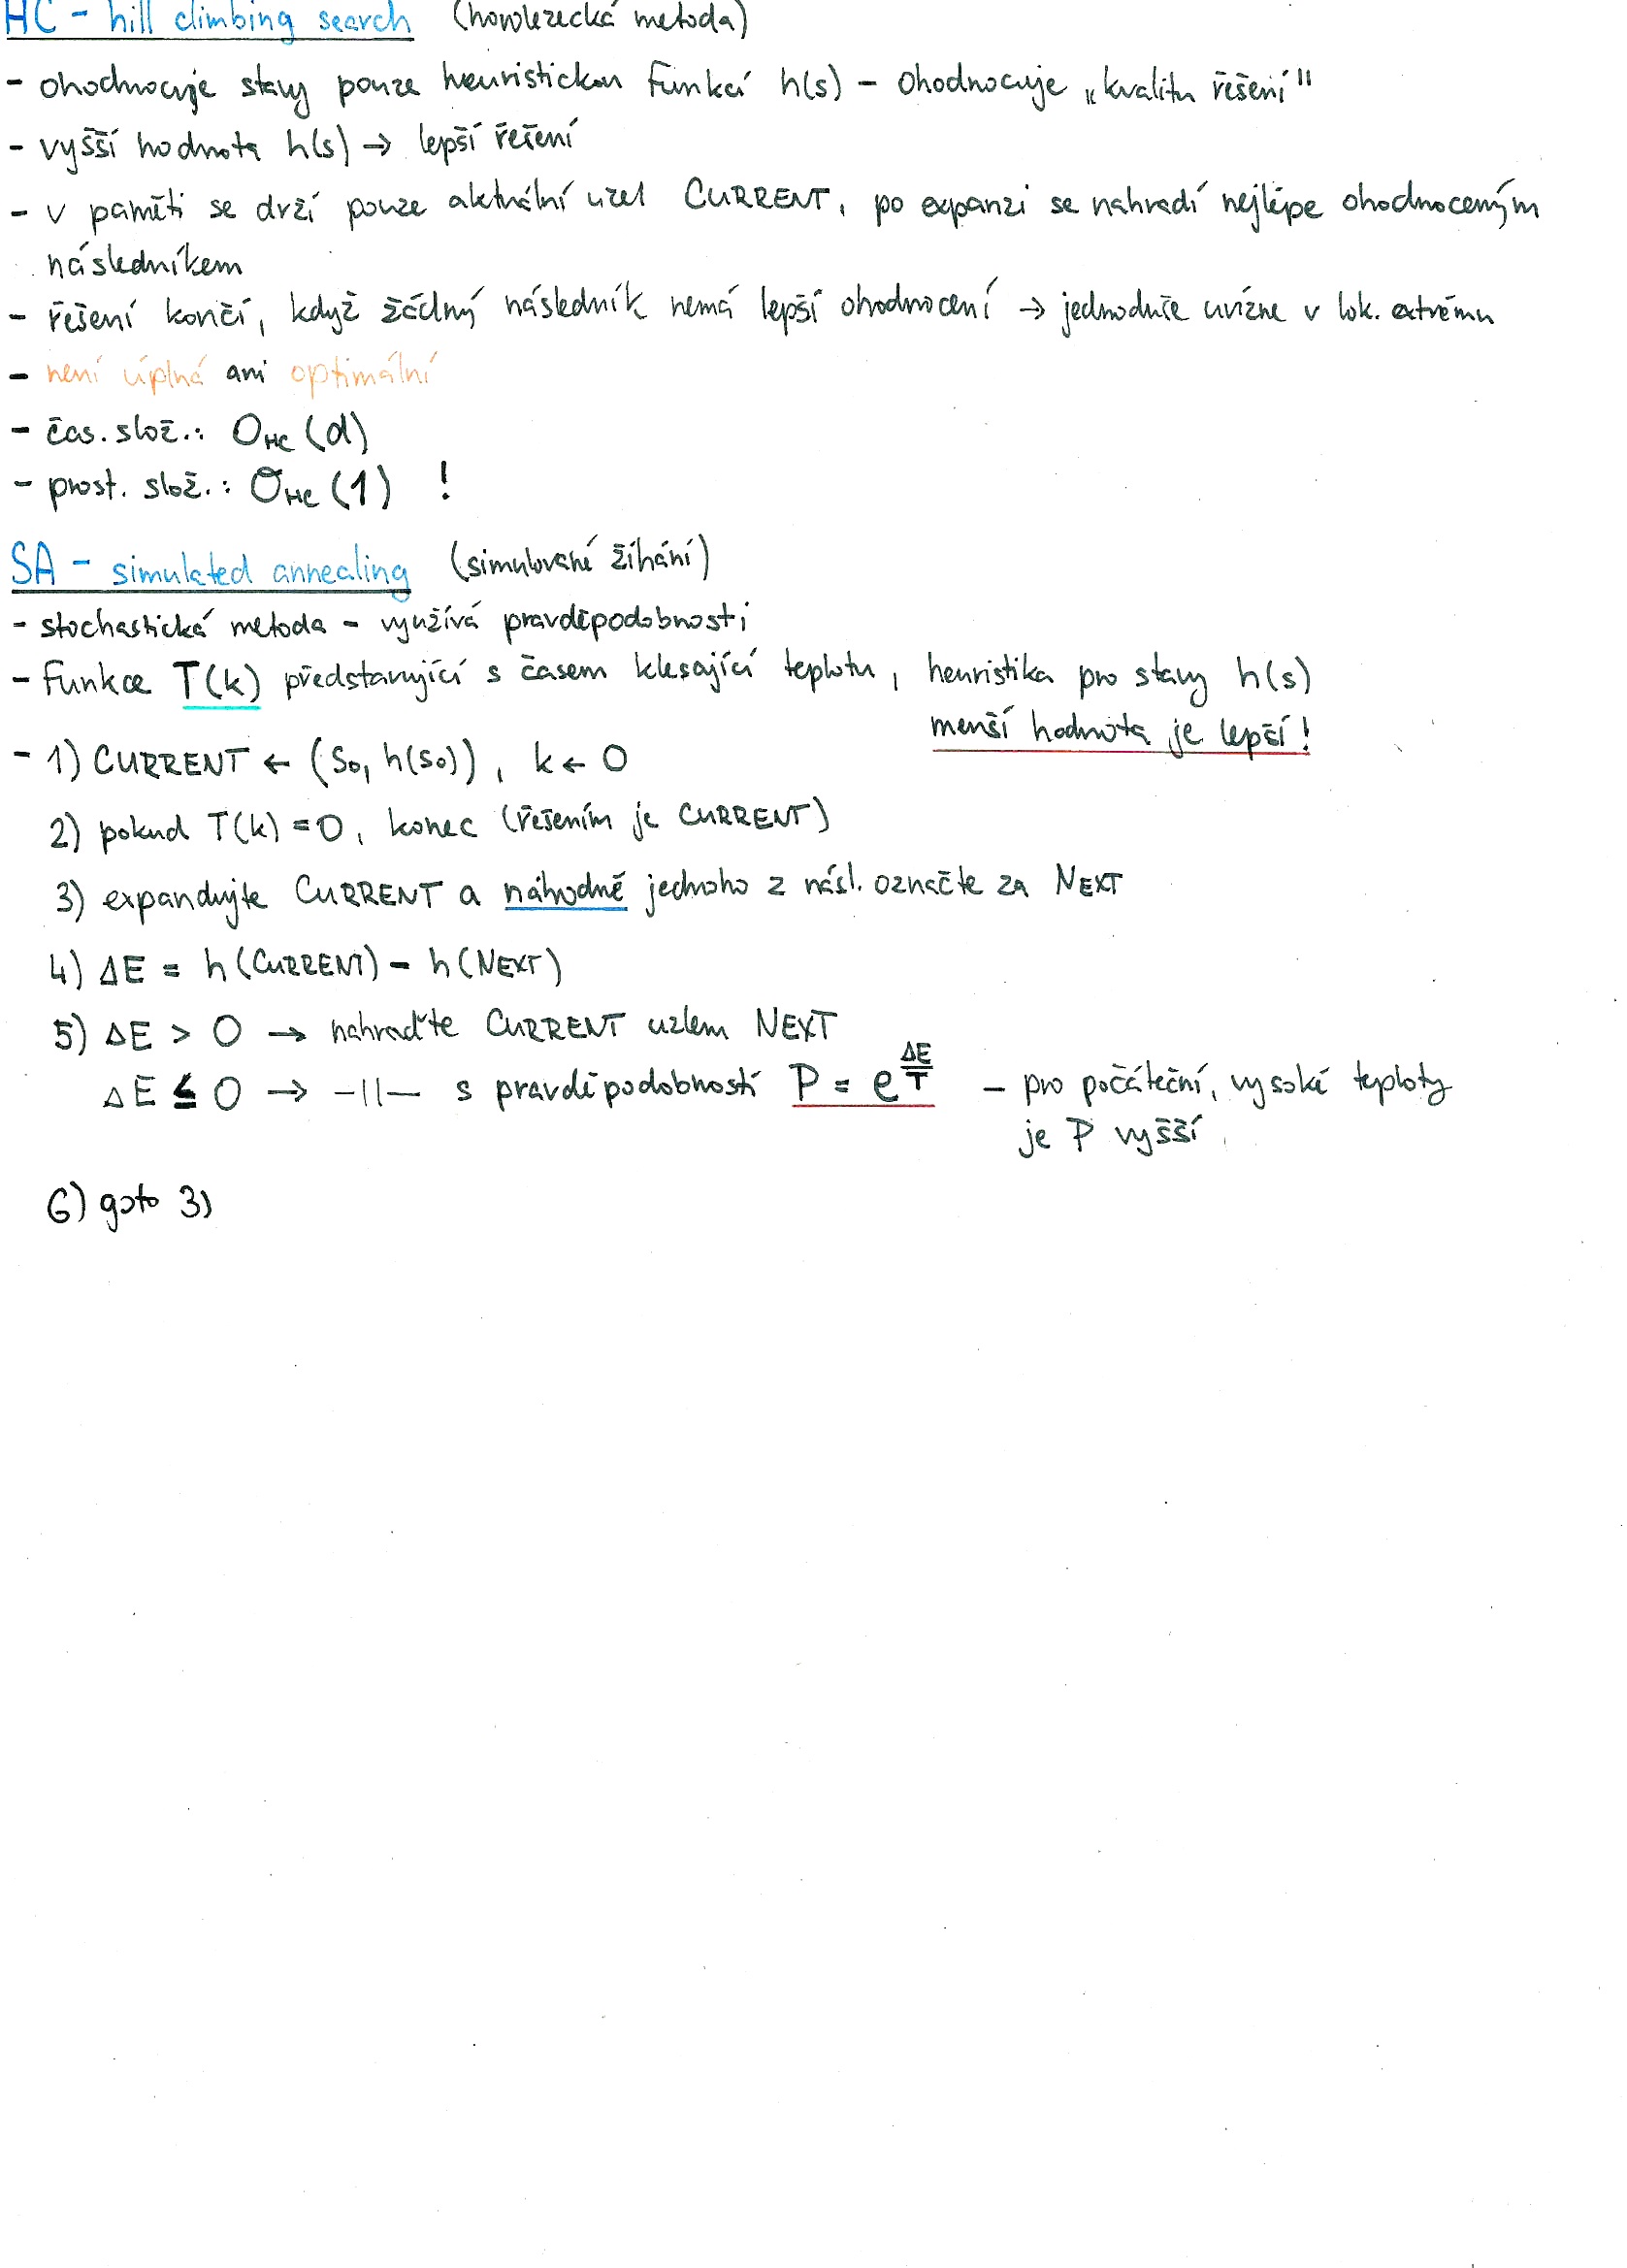 HC - hill climbing search (horolezecká metoda)
- ohodnocuje stavy pouze heuristickou funkcí h(s) - ohodnocuje „kvalitu řešení"
- vyšší hodnota h(s) → lepší řešení
- v paměti se drží pouze aktuální uzel CURRENT, po expanzi se nahradí nejlépe ohodnoceným
následníkem
- řešení končí, když žádný následník nemá lepší ohodnocení → jednoduše uvízne v lok. extrému
- není úplná ani optimální
- čas. slož.: O_HC (d)
- prost. slož.: O_HC (1) !
SA - simulated annealing (simulované žíhání)
- stochastická metoda - využívá pravděpodobnosti
- funkce T(k) představující s časem klesající teplotu, heuristika pro stavy h(s)
menší hodnota je lepší!
- 1) CURRENT ← (s₀, h(s₀)), k ← 0
2) pokud T(k) = 0, konec (řešením je CURRENT)
3) expandujte CURRENT a náhodně jednoho z násl. označte za NEXT
4) ΔE = h(CURRENT) - h(NEXT)
5) ΔE > 0 → nahraďte CURRENT uzlem NEXT
ΔE ≤ 0 → -||- s pravděpodobností P = e^(ΔE/T) - pro počáteční, vysoké teploty
je P vyšší
6) goto 3)